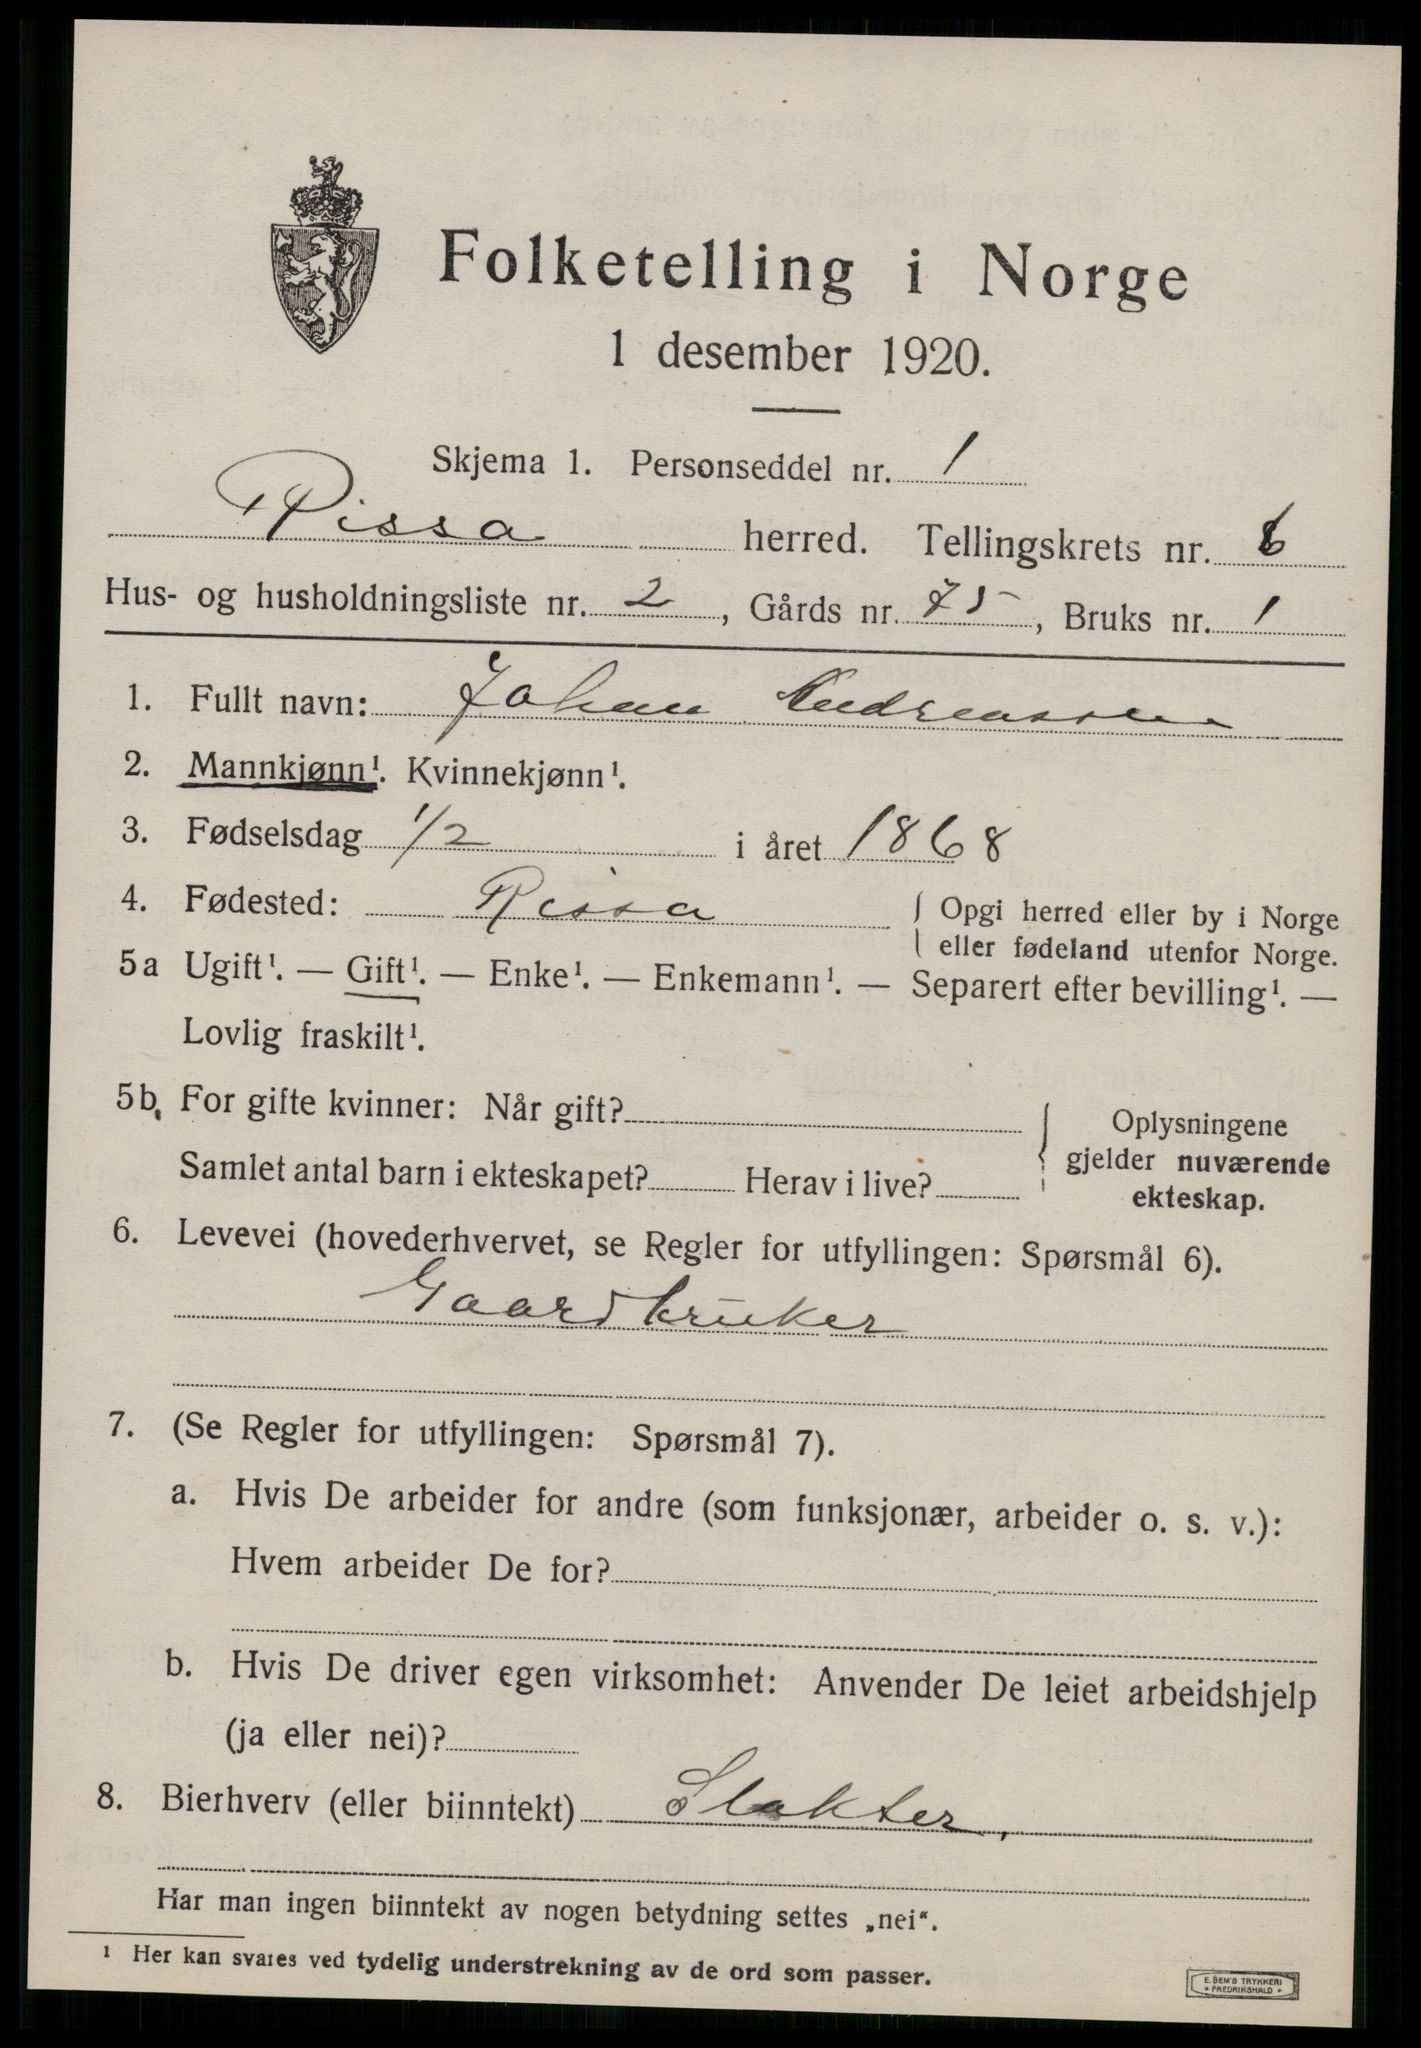 Folketelling i Norge
1 desember 1920.
Skjema 1. Personseddel nr. 1
Rissa herred. Tellingskrets nr. 6
Hus- og husholdningsliste nr. 2, Gårds nr. 75, Bruks nr. 1
1. Fullt navn: Johan Andreassen
2. Mannkjønn¹. Kvinnekjønn¹.
3. Fødselsdag 1/2 i året 1868
4. Fødested: Rissa { Opgi herred eller by i Norge
eller fødeland utenfor Norge.
5a Ugift¹. — Gift¹. — Enke¹. — Enkemann¹. — Separert efter bevilling¹. —
Lovlig fraskilt¹.
5b. For gifte kvinner: Når gift?
Samlet antal barn i ekteskapet? Herav i live?
{ Oplysningene
gjelder nuværende
ekteskap.
6. Levevei (hovederhvervet, se Regler for utfyllingen: Spørsmål 6).
Gaardbruker
7. (Se Regler for utfyllingen: Spørsmål 7).
a. Hvis De arbeider for andre (som funksjonær, arbeider o. s. v.):
Hvem arbeider De for?
b. Hvis De driver egen virksomhet: Anvender De leiet arbeidshjelp
(ja eller nei)?
8. Bierhverv (eller biinntekt) Slakter,
Har man ingen biinntekt av nogen betydning settes „nei“.
¹ Her kan svares ved tydelig understrekning av de ord som passer.
E. SEM'S TRYKKERI
• FREDRIKSHALD •